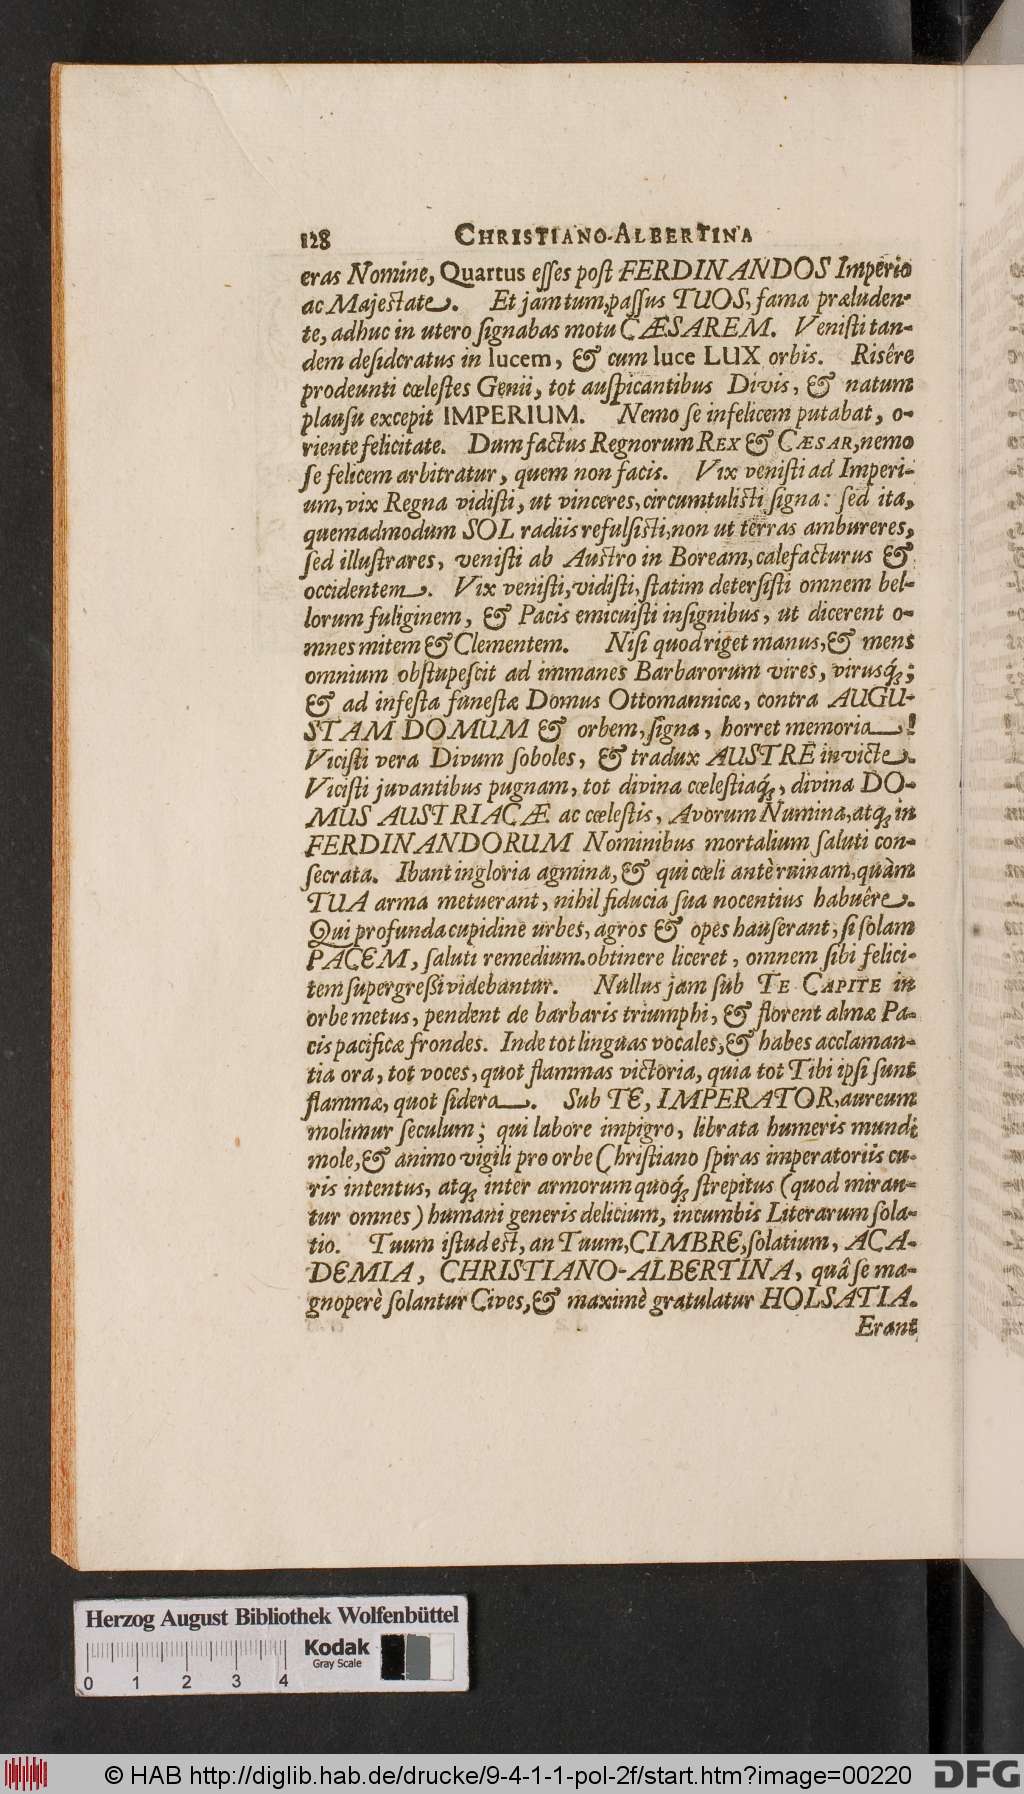 128 CHRISTIANO-ALBERTINA
eras Nomine, Quartus eſſes poſt FERDINANDOS Imperio
ac Majeſtate. Et jam tum, paſſus TUOS, fama præluden-
te, adhuc in utero ſignabas motu CÆSAREM. Veniſti tan-
dem deſideratus in lucem, & cum luce LUX orbis. Risêre
prodeunti cœleſtes Genii, tot auſpicantibus Divis, & natum
plauſu excepit IMPERIUM. Nemo ſe infelicem putabat, o-
riente felicitate. Dum factus Regnorum REX & CÆSAR, nemo
ſe felicem arbitratur, quem non facis. Vix veniſti ad Imperi-
um, vix Regna vidiſti, ut vinceres, circumtuliſti ſigna: ſed ita,
quemadmodum SOL radiis refulſiſti, non ut terras ambureres,
ſed illuſtrares, veniſti ab Auſtro in Boream, calefacturus &
occidentem. Vix veniſti, vidiſti, ſtatim deterſiſti omnem bel-
lorum fuliginem, & Pacis emicuiſti inſignibus, ut dicerent o-
mnes mitem & Clementem. Niſi quod riget manus, & mens
omnium obſtupeſcit ad immanes Barbarorum vires, virusq́;;
& ad infeſta funeſtæ Domus Ottomannicæ, contra AUGU-
STAM DOMUM & orbem, ſigna, horret memoria!
Viciſti vera Divum ſoboles, & tradux AUSTRE invicte.
Viciſti juvantibus pugnam, tot divina cœleſtiaq́;, divina DO-
MUS AUSTRIACÆ ac cœleſtis, Avorum Numina, atq; in
FERDINANDORUM Nominibus mortalium ſaluti con-
ſecrata. Ibant ingloria agmina, & qui cœli antè ruinam, quàm
TUA arma metuerant, nihil fiducia ſua nocentius habuêre.
Qui profunda cupidine urbes, agros & opes hauſerant, ſi ſolam
PACEM, ſaluti remedium. obtinere liceret, omnem ſibi felici-
tem ſupergreſſi videbantur. Nullus jam ſub TE CAPITE in
orbe metus, pendent de barbaris triumphi, & florent almæ Pa-
cis pacificæ frondes. Inde tot linguas vocales, & habes acclaman-
tia ora, tot voces, quot flammas victoria, quia tot Tibi ipſi ſunt
flammæ, quot ſidera. Sub TE, IMPERATOR, aureum
molimur ſeculum; qui labore impigro, librata humeris mundi
mole, & animo vigili pro orbe Chriſtiano ſpiras imperatoriis cu-
ris intentus, atq; inter armorum quoq́; ſtrepitus (quod miran-
tur omnes) humani generis delicium, incumbis Literarum ſola-
tio. Tuum iſtud eſt, an Tuum, CIMBRE, ſolatium, ACA-
DEMIA, CHRISTIANO-ALBERTINA, quâ ſe ma-
gnoperè ſolantur Cives, & maximè gratulatur HOLSATIA.
Erant
Herzog August Bibliothek Wolfenbüttel
Kodak
Gray Scale
0 1 2 3 4
© HAB http://diglib.hab.de/drucke/9-4-1-1-pol-2f/start.htm?image=00220
DFG